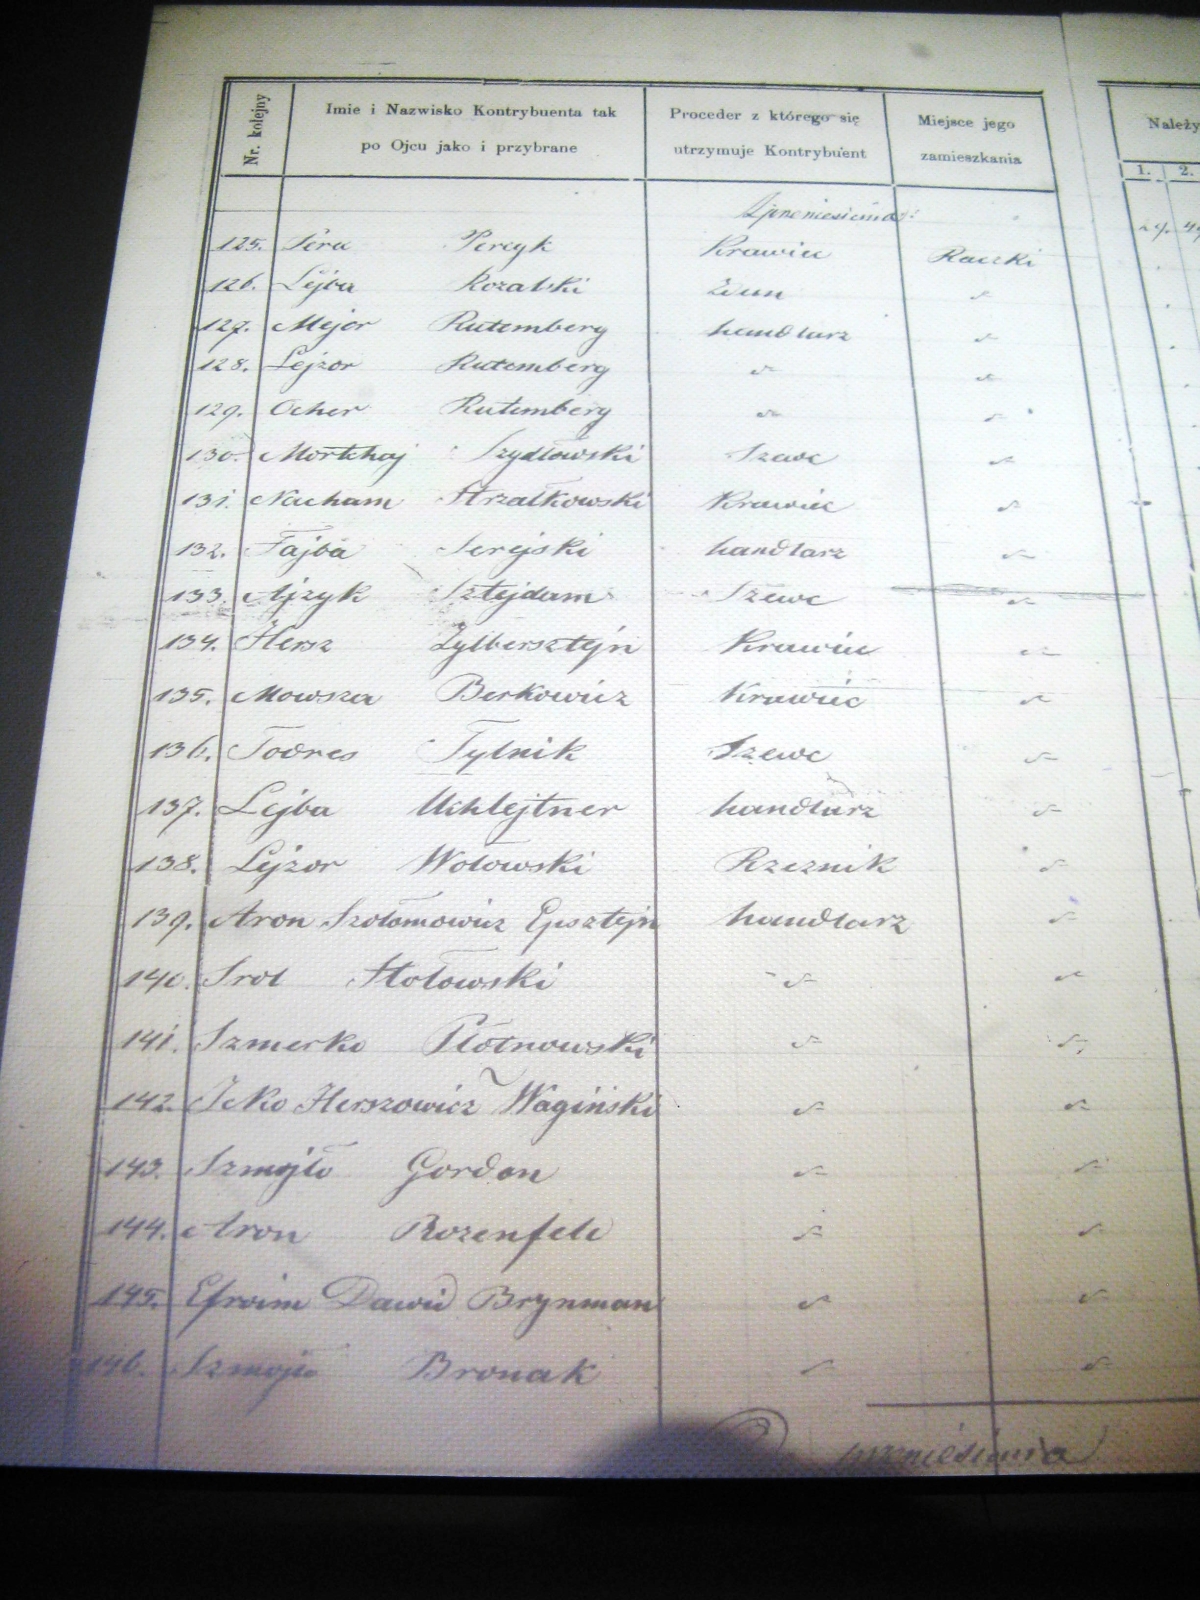 Nr. kolejny Imie i Nazwisko Kontrybuenta tak Proceder z którego się Miejsce jego Należy
po Ojcu jako i przybrane utrzymuje Kontrybuent zamieszkania
1. 2.
Z przeniesienia:
125. Percyk Krawiec Raczki
126. Lejba Rozalski "
127. Mejor Rutemberg handlarz "
128. Lejzor Rutemberg " "
129. Ocher Rutemberg " "
130. Mortchaj Szydłowski Szewc "
131. Nacham Strzałkowski Krawiec "
132. Fajba Serejski handlarz "
133. Ajzyk Sztejdam Szewc "
134. Hersz Zylbersztejn Krawiec "
135. Mowsza Berkowicz Krawiec "
136. Todres Tylnik Szewc "
137. Lejba Uchlejtner handlarz "
138. Lejzor Wołowski Rzeznik "
139. Aron Szołomowicz Epsztejn handlarz "
140. Srol Stołowski " "
141. Szmerko Płotnowski " "
142. Icko Herszowicz Wagiński " "
143. Szmojło Gordon " "
144. Aron Rozenfeld " "
145. Efroim Dawid Brynman " "
146. Szmojło Bronak " "
przeniesienia